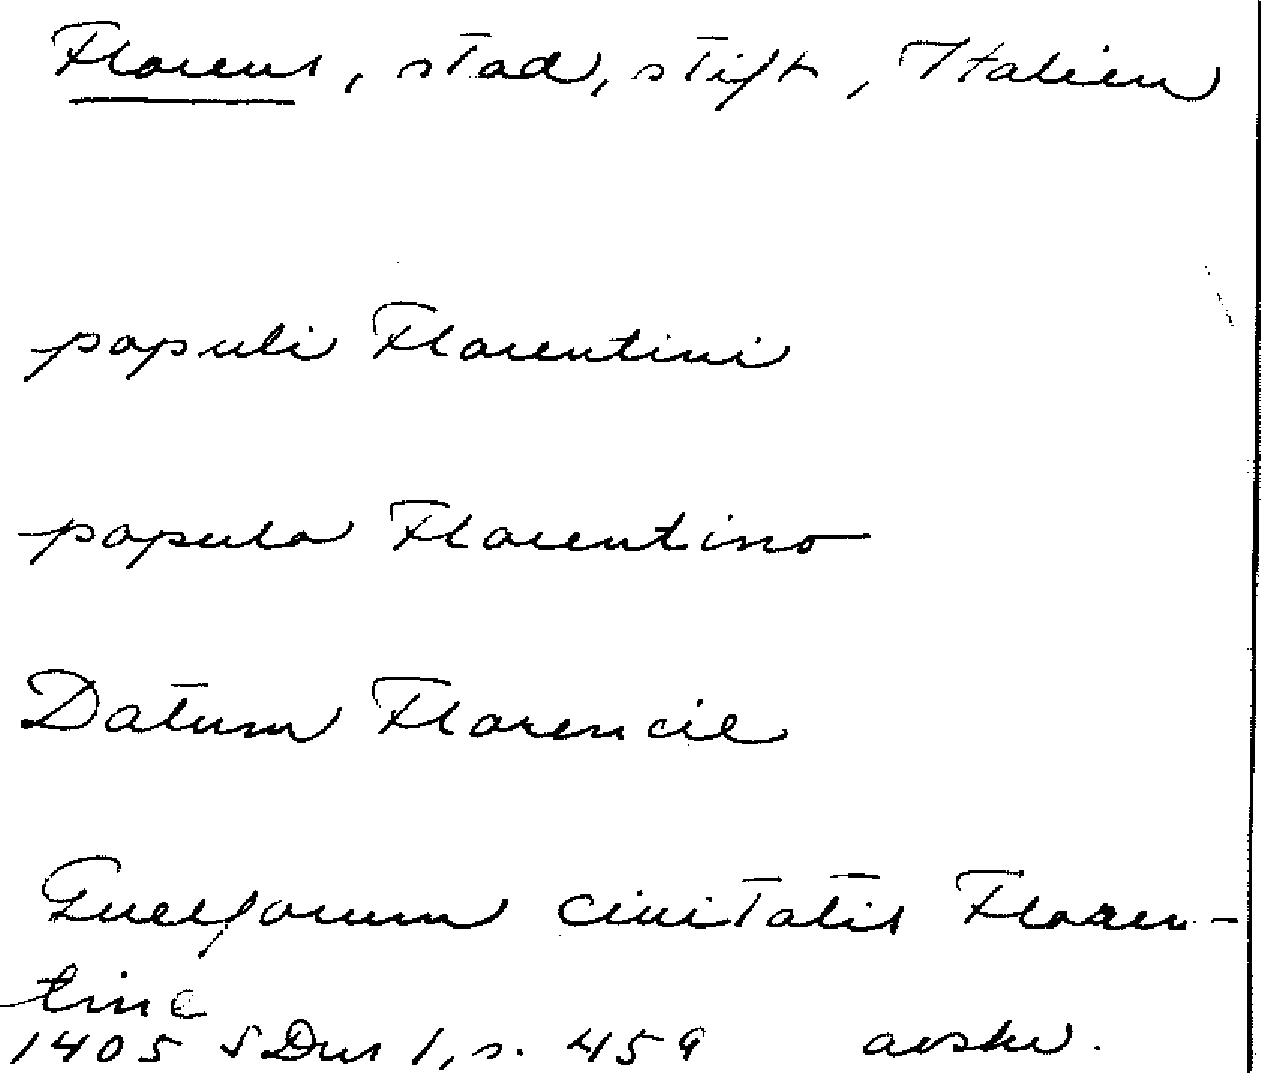 Florens, stad, stift, Italien
populi Florentini
populo Florentino
Datum Florencie
Guelforum ciuitatis Floren-
tine
1405 SDns 1, s. 459 avskr.